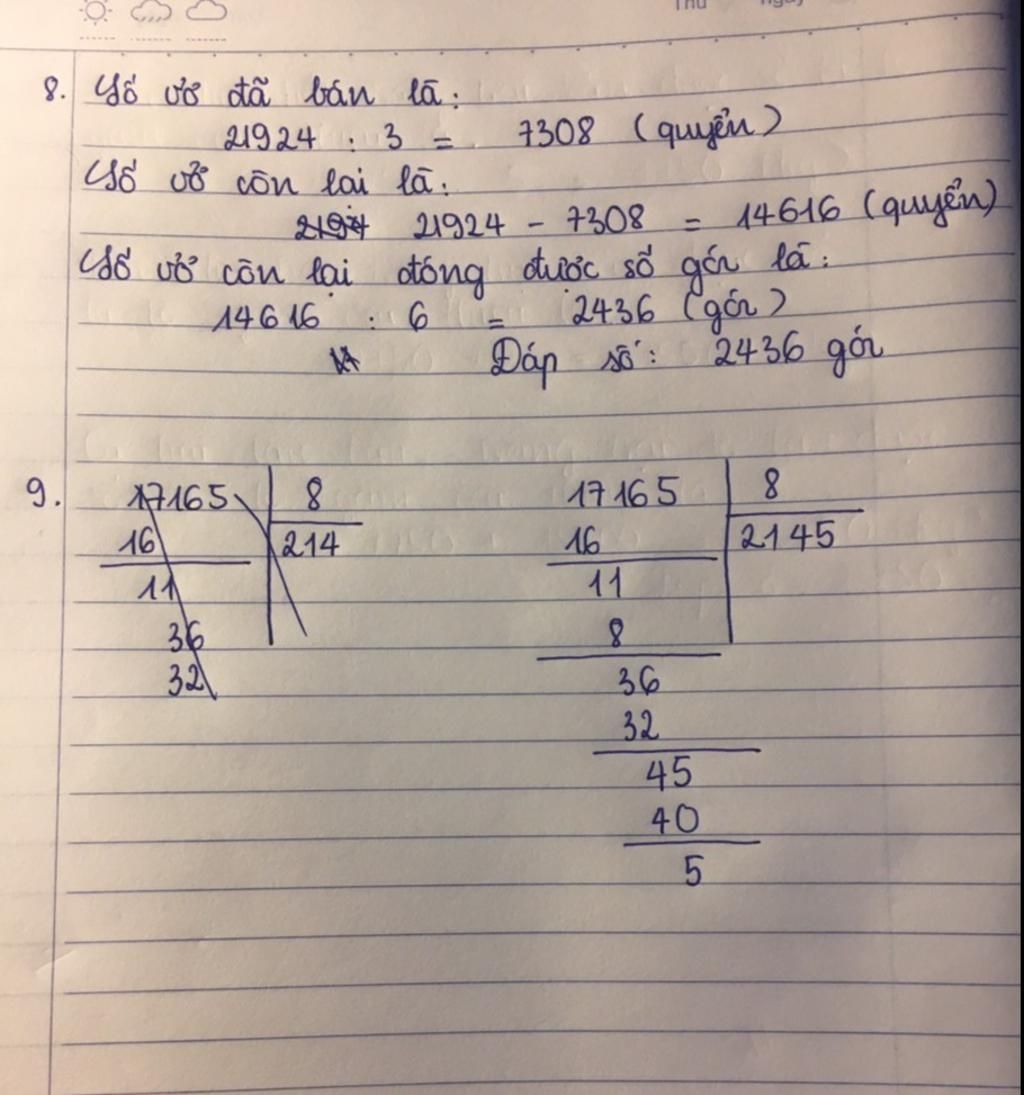 8. Số vở đã bán là:
21924 : 3 = 7308 (quyển)
Số vở còn lại là:
21924 - 7308 = 14616 (quyển)
Số vở còn lại đóng được số gói là:
14616 : 6 = 2436 (gói)
Đáp số: 2436 gói
9. 17165 8 17165 8
16 214 16 2145
11 11
36 8
32 36
32
45
40
5